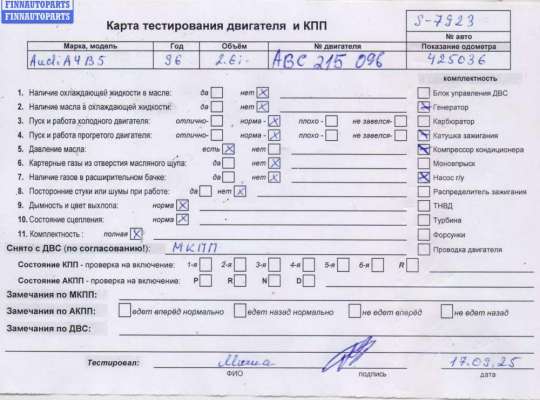 FINNAUTOPARTS
FINNAUTOPARTS
Карта тестирования двигателя и КПП
S-7923
№ авто
Марка, модель Год Объём № двигателя Показание одометра
Audi A4 B5 96 2.6i ABC 215 096 425036
комплектность
1. Наличие охлаждающей жидкости в масле: да нет
Блок управления ДВС
2. Наличие масла в охлаждающей жидкости: да нет
Генератор
3. Пуск и работа холодного двигателя: отлично- норма - плохо - не завелся-
Карбюратор
4. Пуск и работа прогретого двигателя: отлично- норма - плохо - не завелся-
Катушка зажигания
5. Давление масла: есть нет
Компрессор кондиционера
6. Картерные газы из отверстия масляного щупа: да нет
Моновпрыск
7. Наличие газов в расширительном бачке: да нет
Насос г/у
8. Посторонние стуки или шумы при работе: да нет
Распределитель зажигания
9. Дымность и цвет выхлопа: норма
ТНВД
10. Состояние сцепления: норма
Турбина
11. Комплектность : полная
Форсунки
Снято с ДВС (по согласованию!): МКПП
Проводка двигателя
Состояние КПП - проверка на включение: 1-я 2-я 3-я 4-я 5-я 6-я R
Состояние АКПП - проверка на включение: P R N D
Замечания по МКПП:
Замечания по АКПП: едет вперёд нормально едет назад нормально не едет вперёд не едет назад
Замечания по ДВС:
Тестировал: 17.09.25
ФИО подпись дата